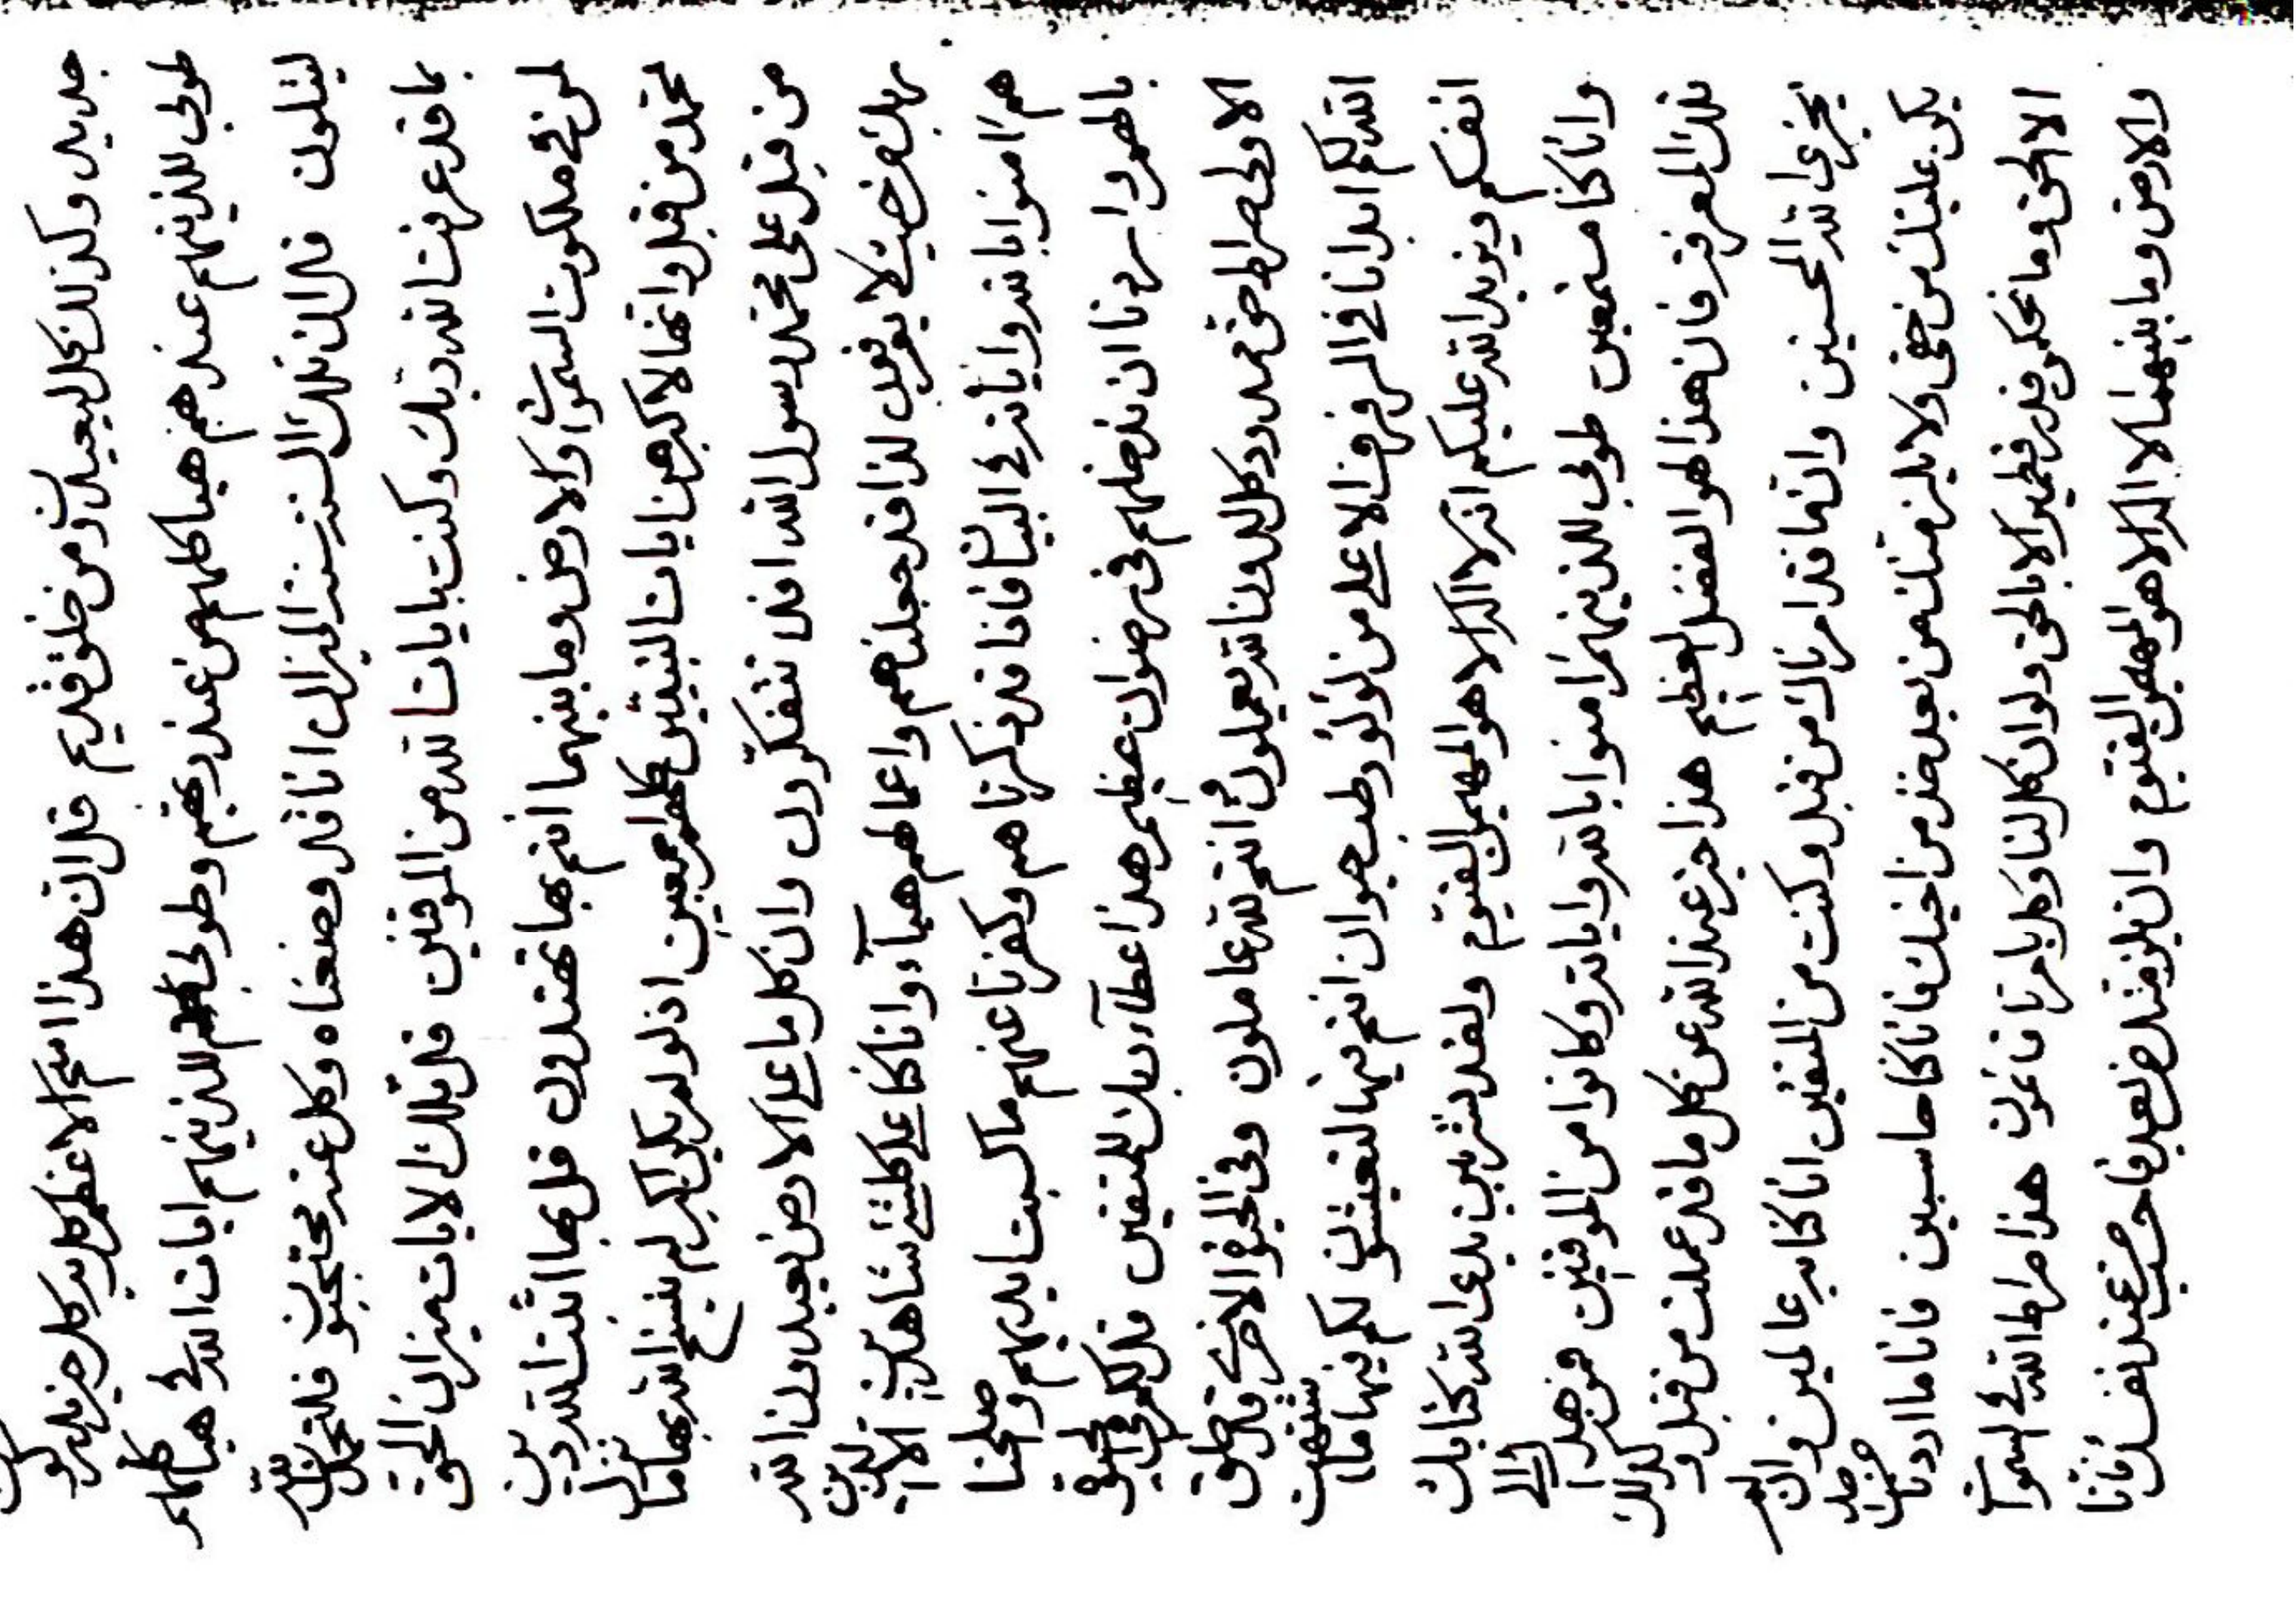 جديد وكذلك كل ليعيدن من خلق قديم قل ان هذا اسم الاعظم كل به كل من يدركو
طوبى للذينهم عند هم هيا كلهم من عند ربهم وطوبى لهم للذينهم ايات الله في هيا كلهم
ليتلون قل ان تلك السنة سنة الميزان انا قد وضعناه وكل عنه محتجبون فلتحكمن
بما قد عرفت الله ربك وكنت بايات الله من الموقنين قل تلك الايات ميزان الحق
لمن في ملكوت السموات والارض وما بينهما انتم بها تهتدون قل بها اثبت الله دين
محمد من قبل وانها لاكبر من ايات النبيين كلهم اجمعين اذ لو لم يكن اكبر لم ينسخ الله بها ما نزل
من قبل على محمد رسول الله افلا تتفكرون وان كل ما على الارض يعبدون الله
بهك من حيث لا يعرفون لذا قد جعلناهم واعمالهم هباء وانا كنا على كلشئ شاهدين الا الذين
هم امنوا بالله واياته في البيان فانا قد ذكرناهم وكفرنا عنهم ما كسبت ايديهم واصلحنا
بالهم واردنا ان ندخلهم في رضوان عظيم هذا عطاء ربك للمتقين قل لكم في الحيوة
الاولى صراط حق ممدود كل لله ربنا تعملون انتم لله عاملون وفي الحيوة الاخرى قد خلق
الله لكم ابدانا في الرفرف الاعلى من لؤلؤ رطب حيوان انتم فيها لتعيشون لكم فيها ما تشتهت
انفسكم ويزيد الله عليكم انه لا اله الا هو المهيمن القيوم ولقد نشرين يدي الله كتابك
وانا كنا مستمعين طوبى للذينهم امنوا بالله واياته وكانوا من الموقنين فمن هدا الى
تلك المعرفة فان هذا لهو الفضل العظيم هذا اجر عند الله عن كل ما قد عملت من قبل وكذلك
يجزي الله المحسنين وانما قد امرناك من قبل وكنت من المتقين انا كنا به عالمين وان لم
يكن عليك من حق ولا يلزمنك من بعد خذ من اخيك فانا كنا حاسبين فانا ما اردنا
الا الحق وما نحكم قدر قطمير الا بالحق ولو ان كل لنا وكل بامرنا قائمون هذا صراط الله في السموات
والارض وما بينهما لا اله الا هو المهيمن القيوم وان يلزمنك من بعد فاحسب عند نفسك فانا